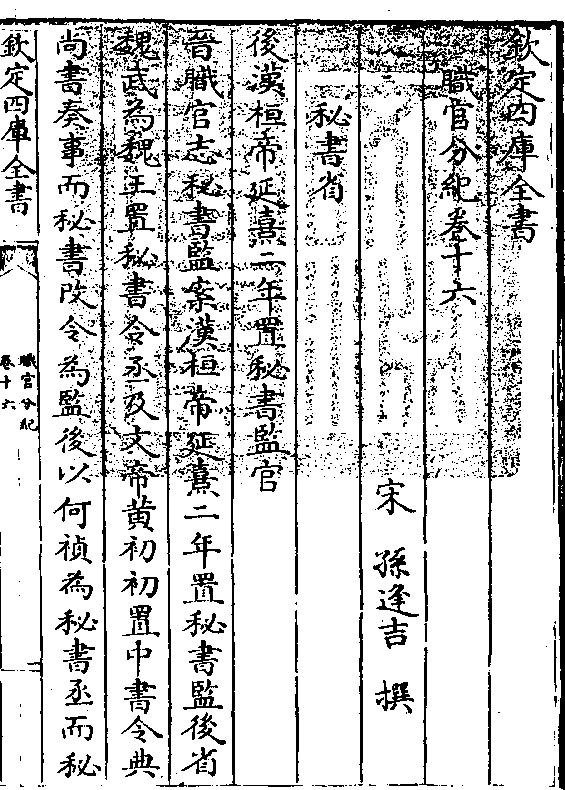 欽定四庫全書
職官分紀卷十六
宋 孫逢吉 撰
秘書省
後漢桓帝延熹二年置秘書監官
晉職官志秘書監案漢桓帝延熹二年置秘書監後省
魏武為魏王置秘書令丞及文帝黃初初置中書令典
尚書奏事而秘書改令為監後以何禎為秘書丞而秘
欽定四庫全書
職官分紀
卷十六